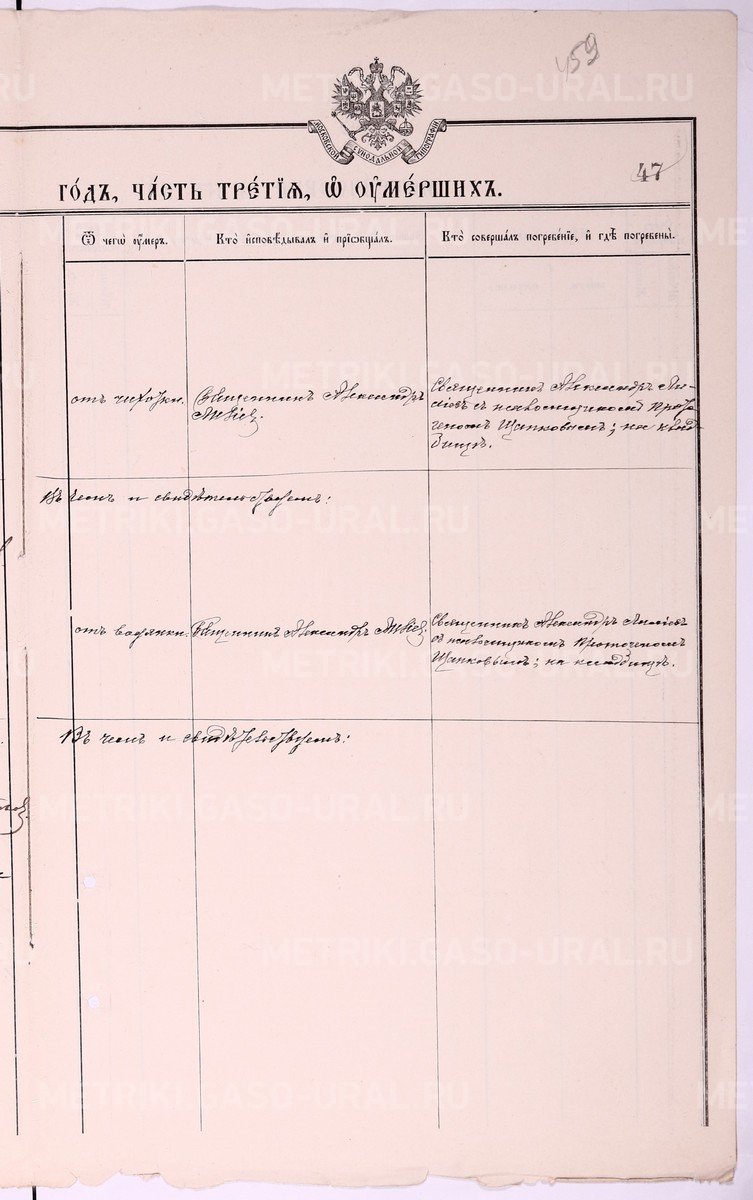 459
МОСКОВСКОЙ СѴНОДАЛЬНОЙ ТИПОГРАФІИ
47
ГО́ДЪ, ЧА́СТЬ ТРЕ́ТІѦ, Ѡ҆ ОУ҆МЕ́РШИХЪ.
Ѿ чегѡ̀ оу҆́мер. Кто̀ и҆сповѣ́дывалъ и҆ прїѡбща́лъ. Кто̀ соверша́лъ погребе́нїе, и҆ гдѣ̀ погребены̀.
отъ чихотки. Священникъ Александръ
Священникъ Александръ
съ псаломщикомъ
Щипковымъ; на клад-
бищѣ.
Въ чемъ и свидѣтельствуемъ:
отъ водянки. Священникъ Александръ
Священникъ Александръ
съ псаломщикомъ
Щипковымъ; на кладбищѣ.
Въ чемъ и свидѣтельствуемъ:
METRIKI.GASO-URAL.RU